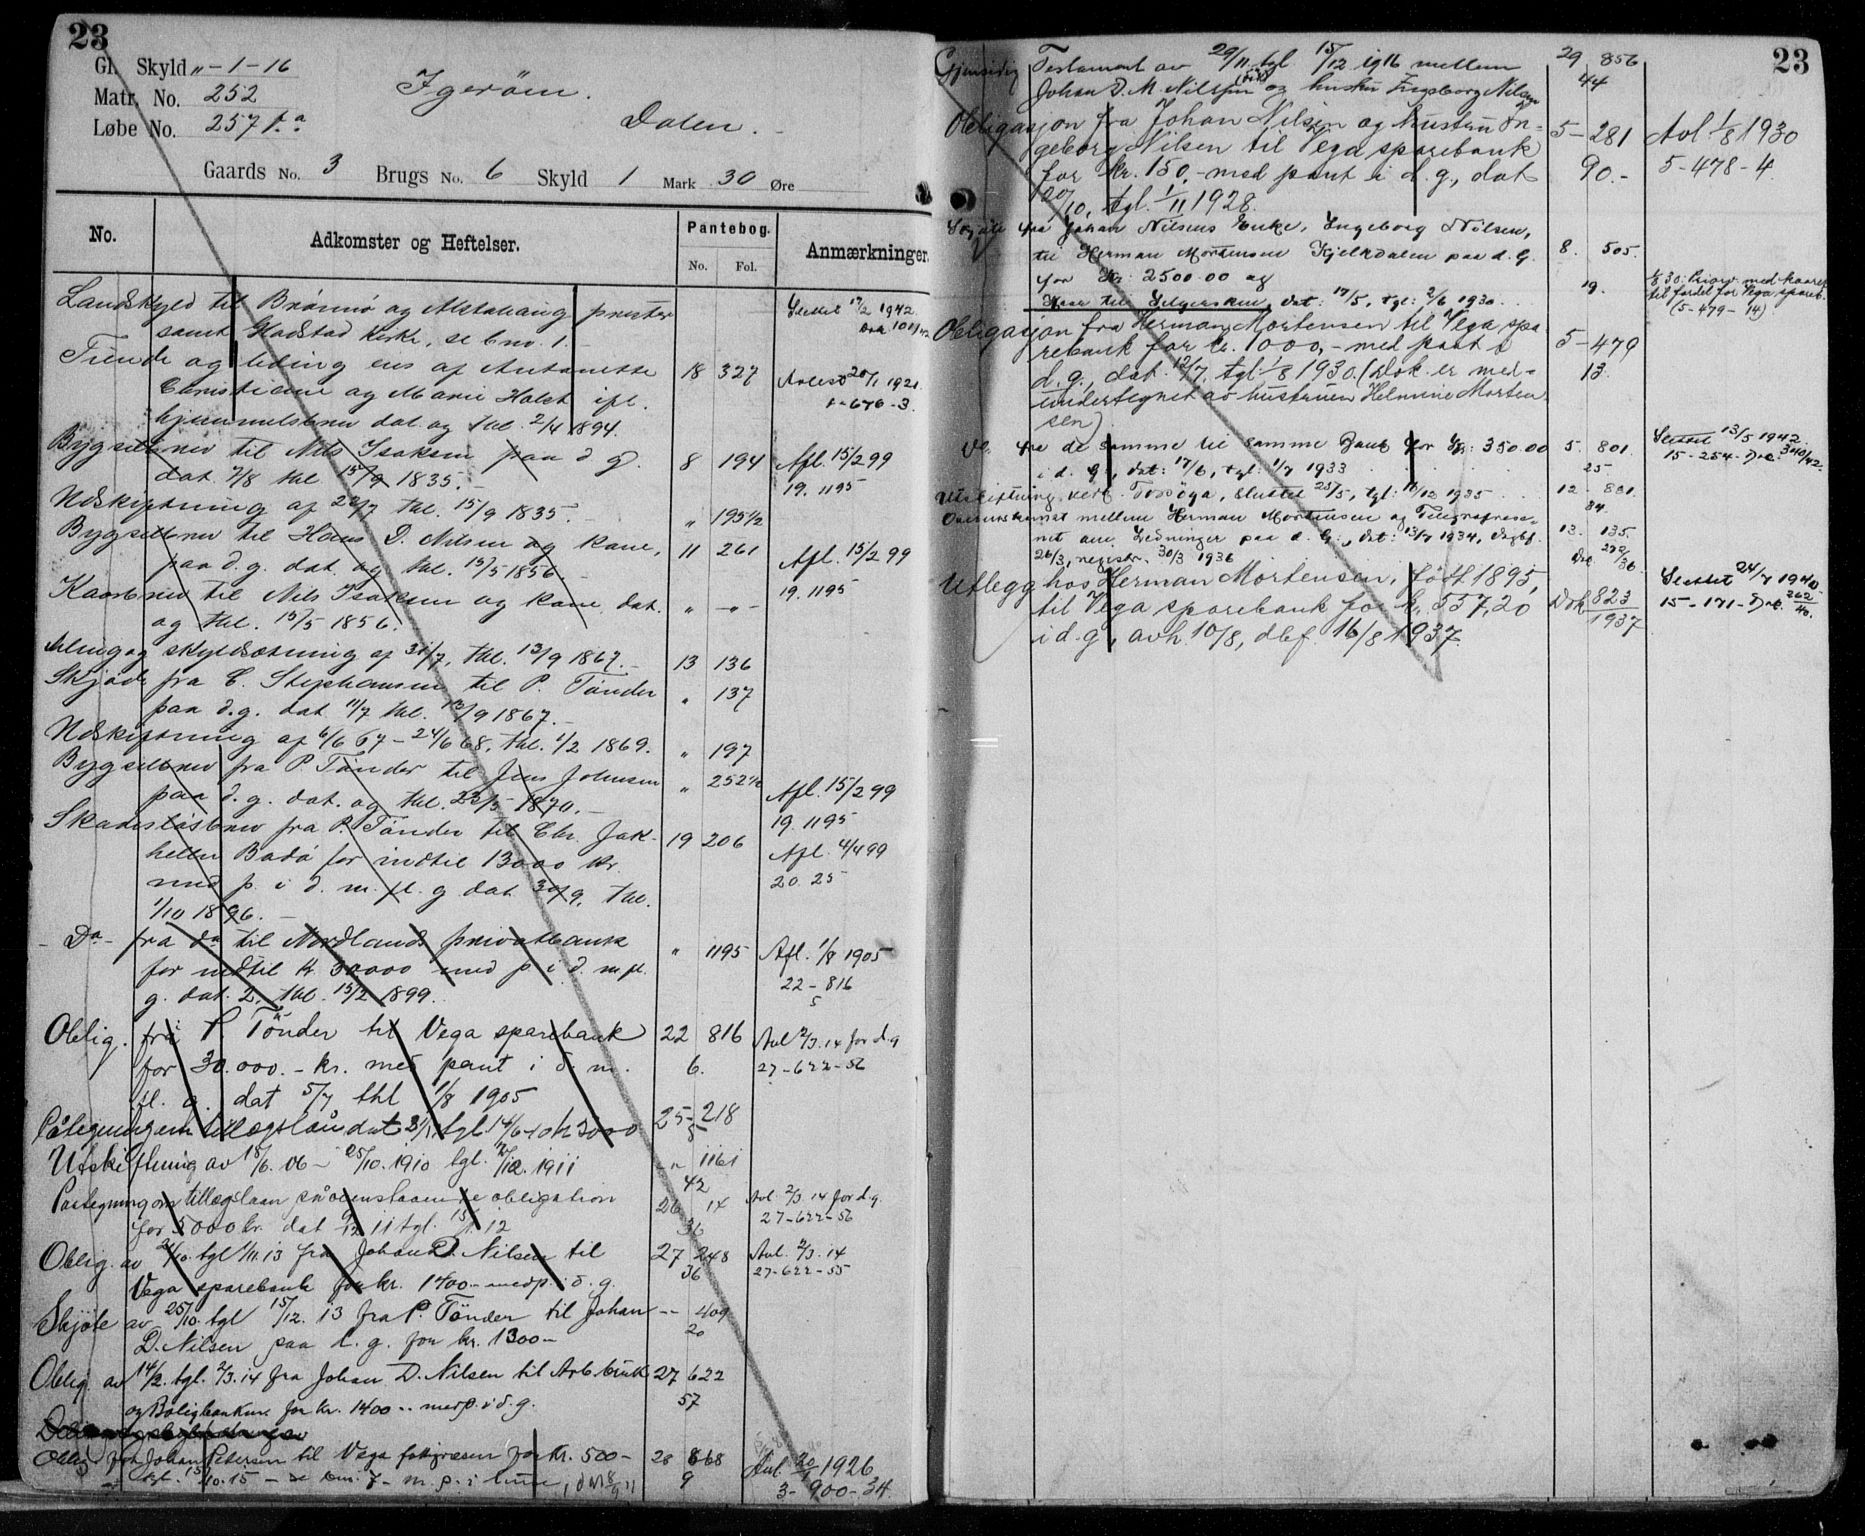 23
Gl. Skyld „-1-16
Matr. No. 252
Løbe No. 257 1.a
Igerøen.
Dalen.
Gaards No. 3 Brugs No. 6 Skyld 1 Mark 30 Øre
No. Adkomster og Heftelser. Pantebog. Anmærkninger.
No. Fol.
Landskyld til Brønnø og Alstahaug prester Slettet 17/2 1942
samt Gladstad kirke, se bno. 1.
Tiende og leding eies af Antonette 18 327 Avlest 20/1 1921
Christiane og Marie Holst ifl. 1-676-3.
hjemmelsbrev dat. og thl. 2/4 1894.
Bygselbrev til Nils Isaksen paa d. g. 8 194 Afl. 15/2 99
dat. 7/8 thl. 15/9 1835. 19. 1195
Udskiftning af 22/7 thl. 15/9 1835. „ 195½
Bygselbrev til Hans D. Nilsen og kone, 11 261 Afl. 15/2 99
paa d. g. dat. og thl. 15/5 1856. 19. 1195
Kaarbrev til Nils Isaksen og kone, dat. „ -„-
og thl. 15/5 1856.
Maling og skyldsætning af 31/7, thl. 13/9 1867. 13 136
Skjøde fra C. Stephansen til P. Tønder „ 137
paa d. g. dat. 11/7 thl. 13/9 1867.
Udskiftning af 6/6 67 - 24/6 68, thl. 1/2 1869. „ 197
Bygselbrev fra P. Tønder til Jens Johnsen „ 252½ Afl. 15/2 99
paa d. g. dat. og thl. 23/5 1870. 19. 1195
Skadesløsbrev fra P. Tønder til Chr. Jak- 19 206 Afl. 4/4 99
hellen Bodø for indtil 13000 kr. 20. 25
med p. i d. m. fl. g. dat. 30/9, thl.
1/10 1896.
- Do - fra do til Nordlands privatbank „ 1195 Afl. 1/8 1905
for indtil kr. 30000 med p. i d. m. fl. 22-816
g. dat. 2, thl. 15/2 1899. 5
Oblig. fra P. Tönder til Vega sparebank 22 816 Avl. 2/3.14 for d. g.
for 30.000.- kr. med pant i d. m. 6. 27-622-56
fl. g. dat 5/7 thl 1/8 1905
Påtegning om tillægslån dat 31/1, tgl. 14/6-10 kr. 3000 25-218
5
Utskiftning av 15/6. 06 - 25/10. 1910 tgl. 2/12. 1911 „ 1161
42
Paategning om tillægslaan på ovenstaaende obligation 26 14 Avl. 2/3.14 for d. g.
for 5000 kr. dat 9/12 11 tgl. 15/1 12 36 27-622-56
Oblig. av 24/10. tgl 1/11.13 fra Johan D. Nilsen til 27 248 Avl. 2/3.14
Vega sparebank for kr. 1400.- med p. i d. g. 36 27-622-55
Skjöte av 25/10. tgl 15/12. 13 fra P. Tönder til Johan -- 409
D. Nilsen paa d. g. for kr. 1300- 20
Oblig. av 14/2. tgl. 2/3.14 fra Johan D. Nilsen til Arb. bruk 27 622
og Boligbanken for kr. 1400.- med p. i d. g. 57
Oblig fra Johan Petersen til Vega fattigvæsen for kr. 500- 28 868 Avl. 20/1 1926
tgl. 15/10.15 - 9 3-900-34.
Gjensidig Testament av 29/11 tgl 15/12 1916 mellem 29 856 23
Johan D. M. Nilsen og hustru Ingeborg Nilsen 44
Obligasjon fra Johan Nilsen og hustru In- 5-281 Avl. 1/8 1930
geborg Nilsen til Vega sparebank 90.- 5-478-4.
for kr. 150,- med pant i d. g., dat
20/10, tgl. 1/11 1928.
Skjøte fra Johan Nilsens Enke, Ingeborg Nilsen,
til Herman Mortensen Kjelkdalen paa d. g. 8. 505.
for kr. 2500.00 og 19. 1/8 30: Prior. med kaaret
Kaar til Selgersken, dat: 17/5, tgl: 2/6 1930. til fordel for Vega spareb.
(5-479-14)
Obligasjon fra Herman Mortensen til Vega spa- 5-479
rebank for kr. 1000,- med pant i 13.
d. g., dat. 12/7, tgl. 1/8 1930. (Dok. er med-
undertegnet av hustruen Helmine Morten-
sen).
Do. fra de samme til samme Bank for kr: 350.00 5. 801. Slettet 13/5 1942.
i d. g., dat: 17/6, tgl: 1/7 1933 25 15-254-Dok. 340/42.
Utskiftning vedk. , sluttet 25/5, tgl: 16/12 1935 12. 831.
84.
Overenskomst mellem Herman Mortensen og Telegrafvese- 13. 135.
net om Ledninger paa d. g., dat: 13/7 1934, dagbf.
26/3, registr. 30/3 1936
Utlegg hos Herman Mortensen, født 1895, Slettet 24/7 1940
til Vega sparebank for kr. 557,20 Dok. 823/1937 15-171-Dok. 262/40.
i d. g., avh. 10/8, dbf. 16/8 1937.